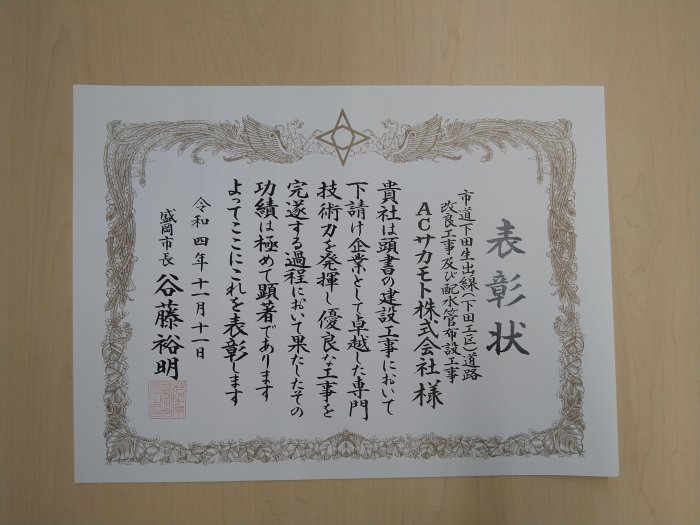 表彰状
市道下田生出線(下田工区)道路
改良工事及び配水管布設工事
ACサカモト株式会社 様
貴社は頭書の建設工事において
下請け企業として卓越した専門
技術力を発揮し優良な工事を
完遂する過程において果たしたその
功績は極めて顕著であります
よってここにこれを表彰します
令和四年十一月十一日
盛岡市長 谷藤裕明